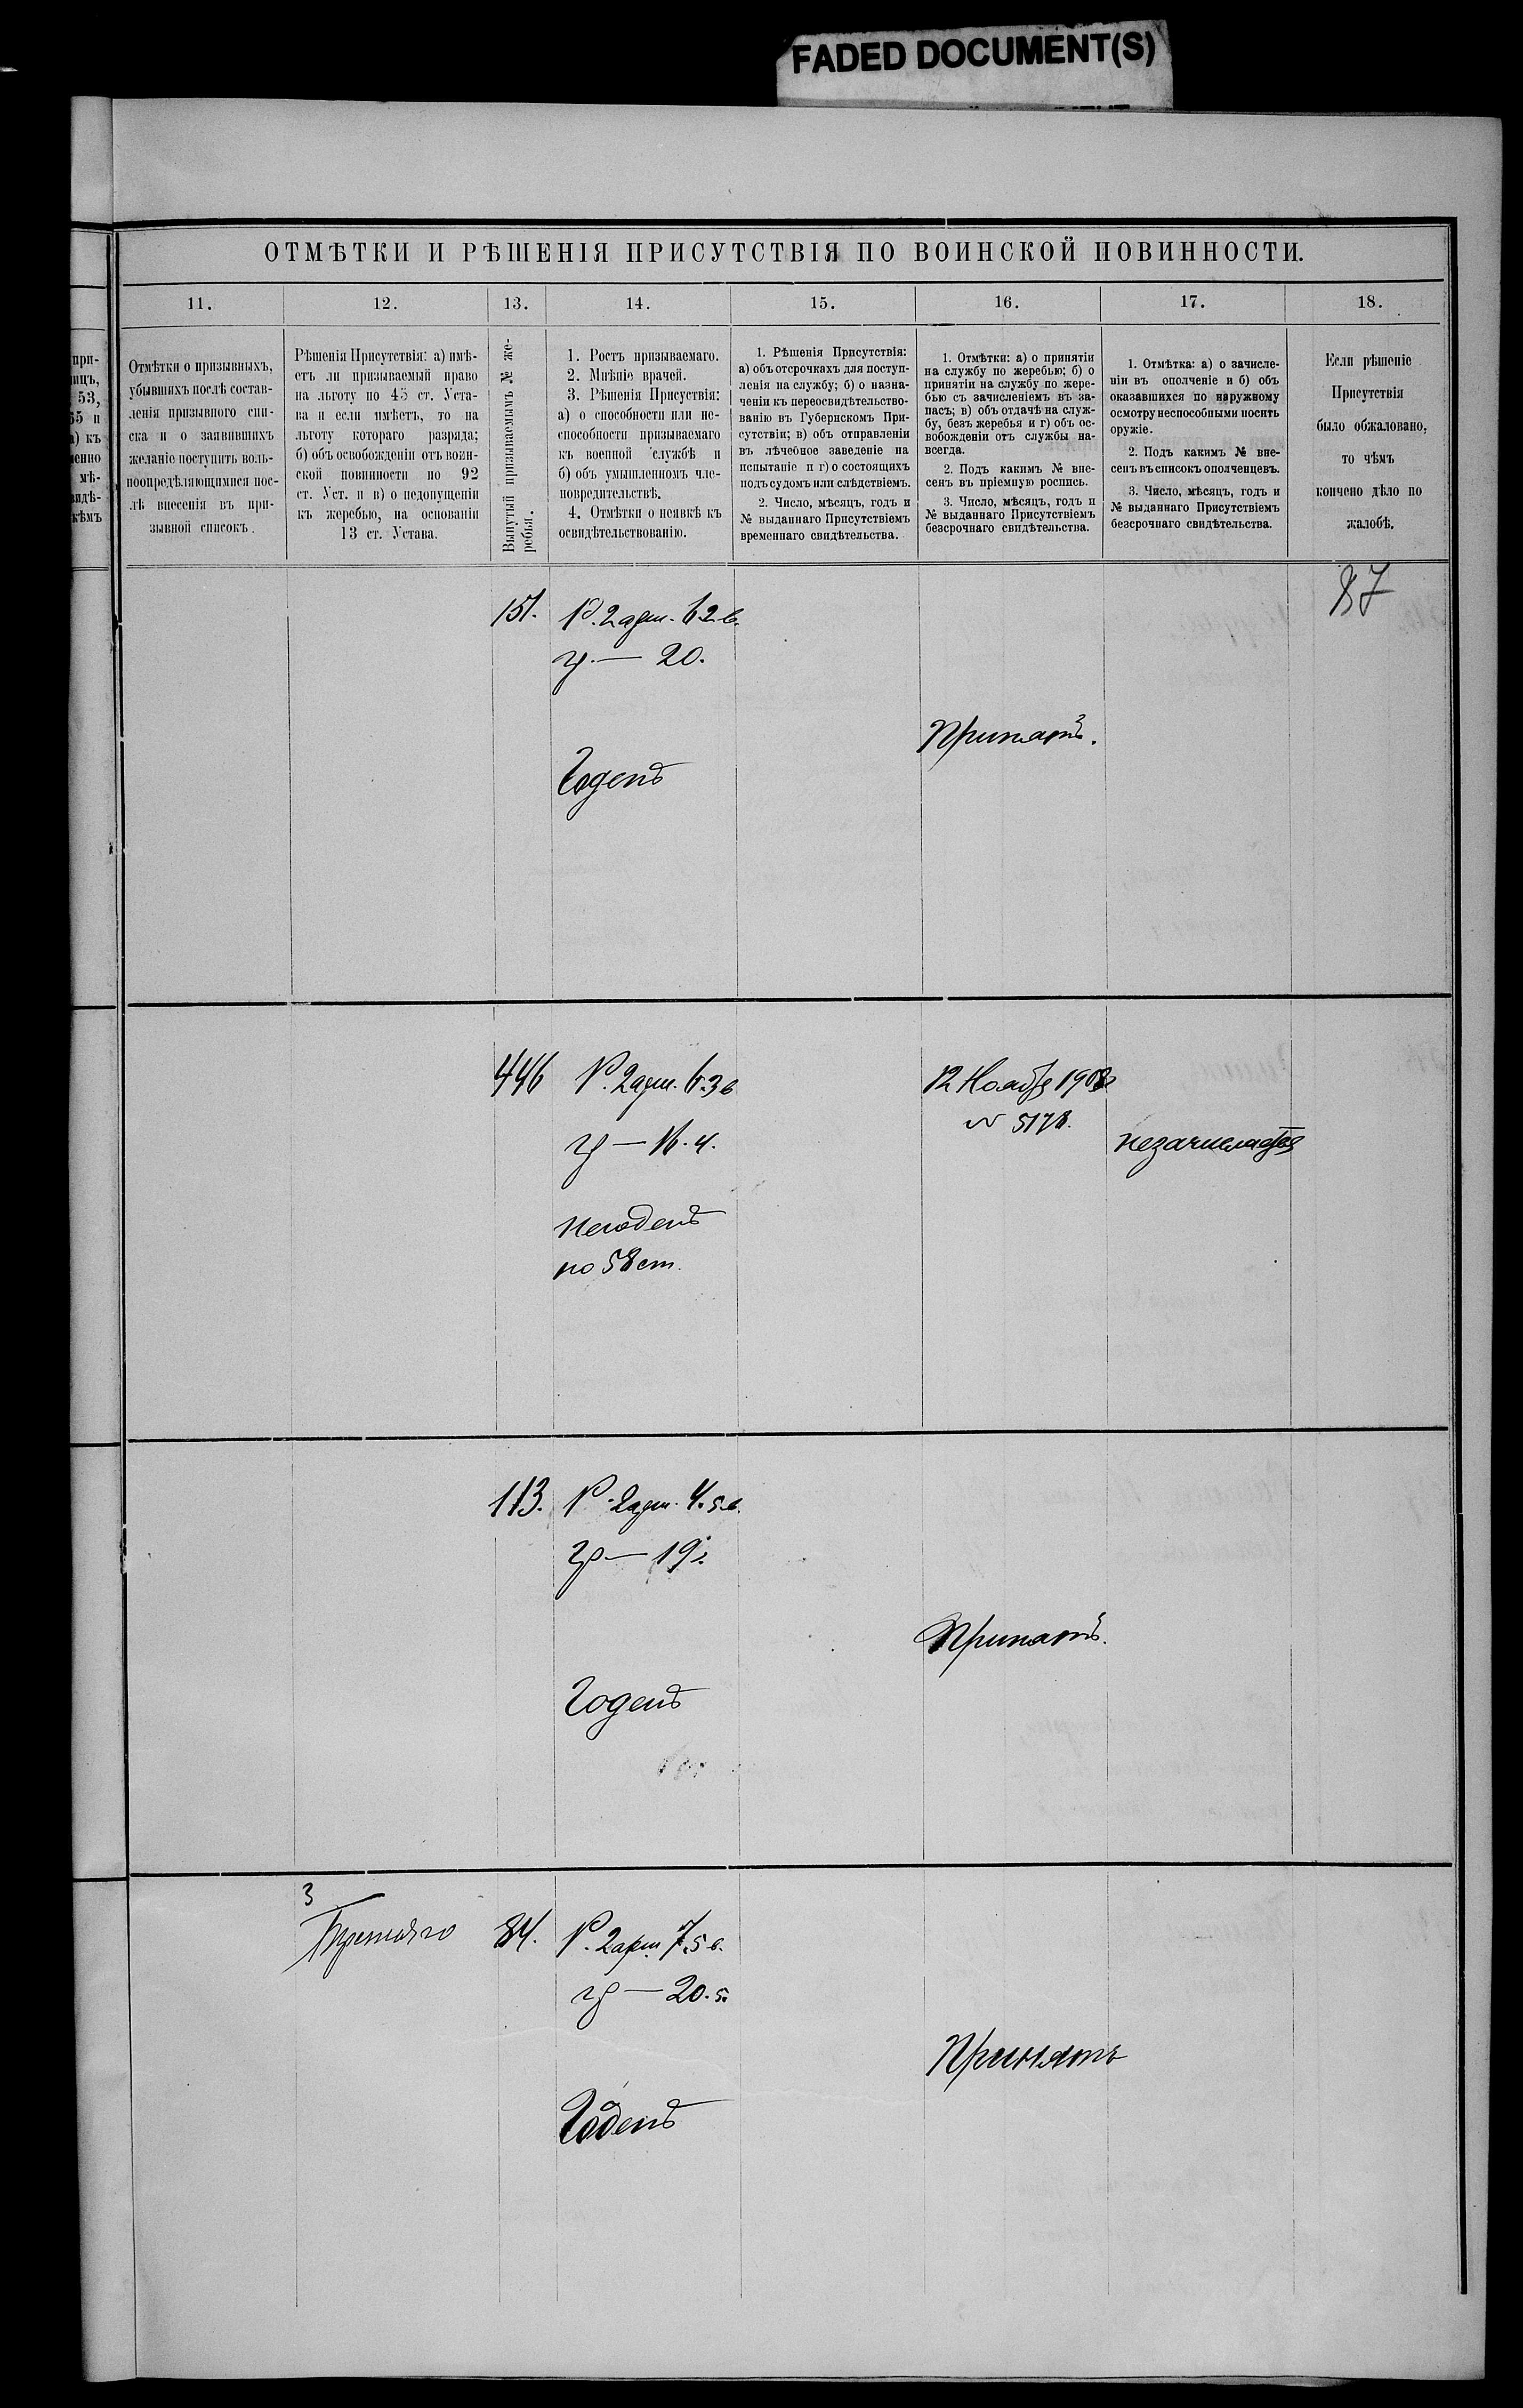 FADED DOCUMENT(S)
ОТМѢТКИ И РѢШЕНІЯ ПРИСУТСТВІЯ ПО ВОИНСКОЙ ПОВИННОСТИ.
11.
12.
13.
14.
15.
16.
17.
18.
Отмѣтки о призывныхъ,
убывшихъ послѣ состав-
ленія призывного спи-
ска и о заявившихъ
желаніе поступить воль-
ноопредѣляющимися пос-
лѣ внесенія въ при-
зывной списокъ.
Рѣшенія Присутствія: а) имѣ-
етъ ли призываемый право
на льготу по 45 ст. Уста-
ва и если имѣетъ, то на
льготу котораго разряда;
б) объ освобожденіи отъ воин-
ской повинности по 92
ст. Уст. и в) о недопущеніи
къ жеребью, на основаніи
13 ст. Устава.
Вынутый призываемымъ № же-
ребья.
1. Ростъ призываемаго.
2. Мнѣніе врачей.
3. Рѣшенія Присуствія:
а) о способности или не-
способности призываемаго
къ военной службѣ и
б) объ умышленномъ чле-
новредительствѣ.
4. Отмѣтки о неявкѣ къ
освидѣтельствованію.
1. Рѣшенія Присутствія:
а) объ отсрочкахъ для поступ-
ленія на службу; б) о назна-
ченіи къ переосвидѣтельство-
ванію въ Губернскомъ При-
сутствіи; в) объ отправленіи
въ лѣчебное заведеніе на
испытаніе и г) о состоящихъ
подъ судомъ или слѣдствіемъ.
2. Число, мѣсяцъ, годъ и
№ выданнаго Присутствіемъ
временнаго свидѣтельства.
1. Отмѣтки: а) о принятіи
на службу по жеребью; б) о
принятіи на службу по жере-
бью съ зачисленіемъ въ за-
пасъ; в) объ отдачѣ на служ-
бу, безъ жеребья и г) объ ос-
вобожденіи отъ службы на-
всегда.
2. Подъ какимъ № вне-
сенъ въ пріемную роспись.
3. Число, мѣсяцъ, годъ и
№ выданнаго Присутствіемъ
безсрочнаго свидѣтельства.
1. Отмѣтка: а) о зачисле-
ніи въ ополченіе и б) объ
оказавшихся по наружному
осмотру неспособными носить
оружіе.
2. Подъ какимъ № вне-
сенъ въ списокъ ополченцевъ.
3. Число, мѣсяцъ, годъ и
№ выданнаго Присутствіемъ
безсрочнаго свидѣтельства.
Если рѣшеніе
Присутствія
было обжаловано,
то чѣмъ
кончено дѣло по
жалобѣ.
87
151.
Р. 2 арш. 6 2 в.
гр. — 20.
Годенъ
Принятъ.
446
Р. 2 арш. 6. 3 в
гр — 16. 4.
негоденъ
по 58 ст.
12 Ноября 1908
№ 5178.
незачисляется
113.
Р. 2 арш. 4. 5 в.
гр — 19 2
Годенъ
Принятъ.
3
Третьяго
84.
Р. 2 арш 7. 5 в.
гр — 20. 5.
Годенъ
Принятъ